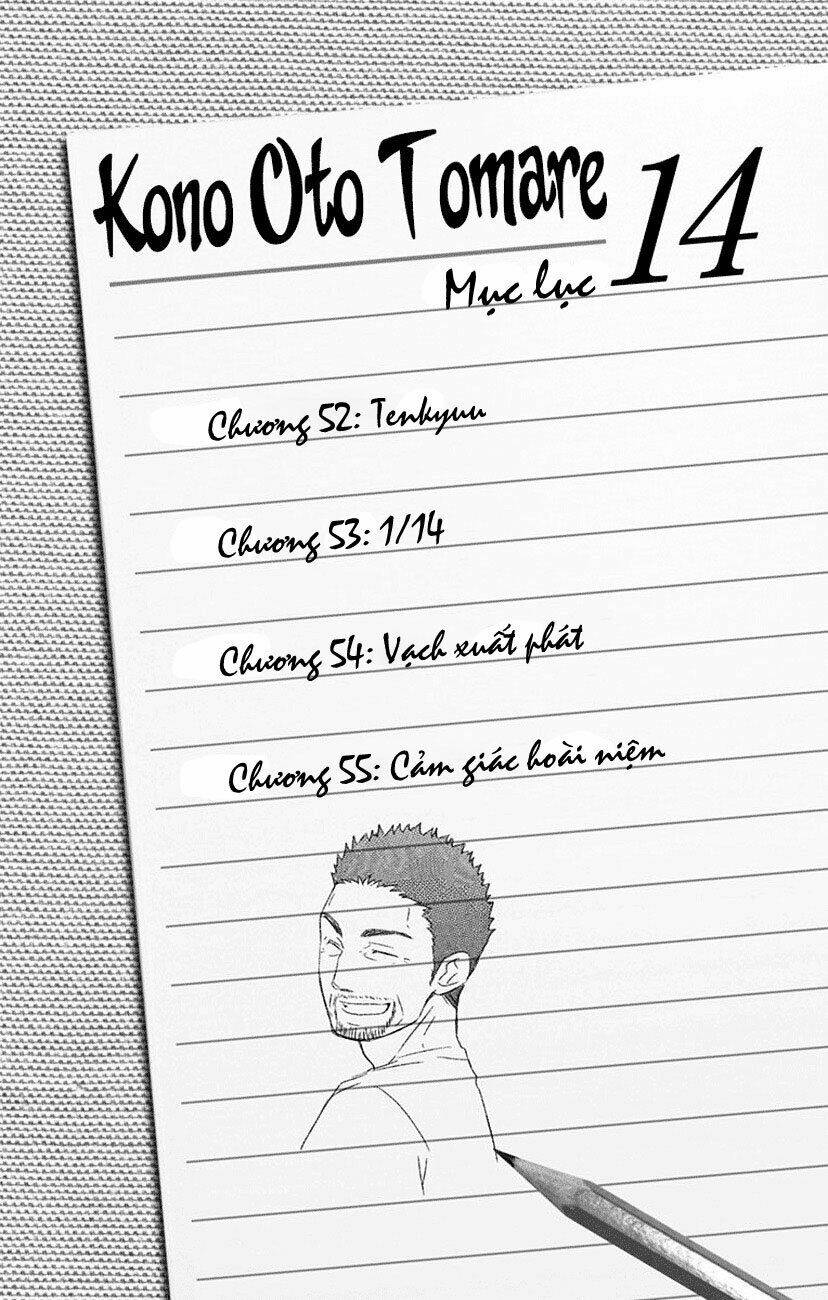 Kono Oto Tomare 14
Mục lục
Chương 52: Tenkyuu
Chương 53: 1/14
Chương 54: Vạch xuất phát
Chương 55: Cảm giác hoài niệm